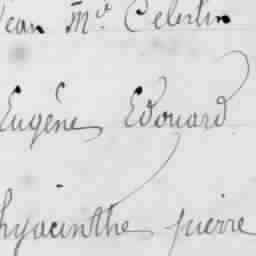 Jean Mie Célestin
Eugène Edouard
hyacinthe pierre